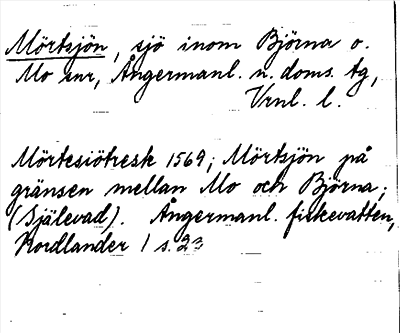 Mörtsjön, sjö inom Björna o.
Mo snr, Ångermanl. n. doms. tg,
Vrnl. l.
Mörtesiötresk 1569; Mörtsjön på
gränsen mellan Mo och Björna;
(Själevad). Ångermanl. fiskevatten,
Nordlander 1 s. 23